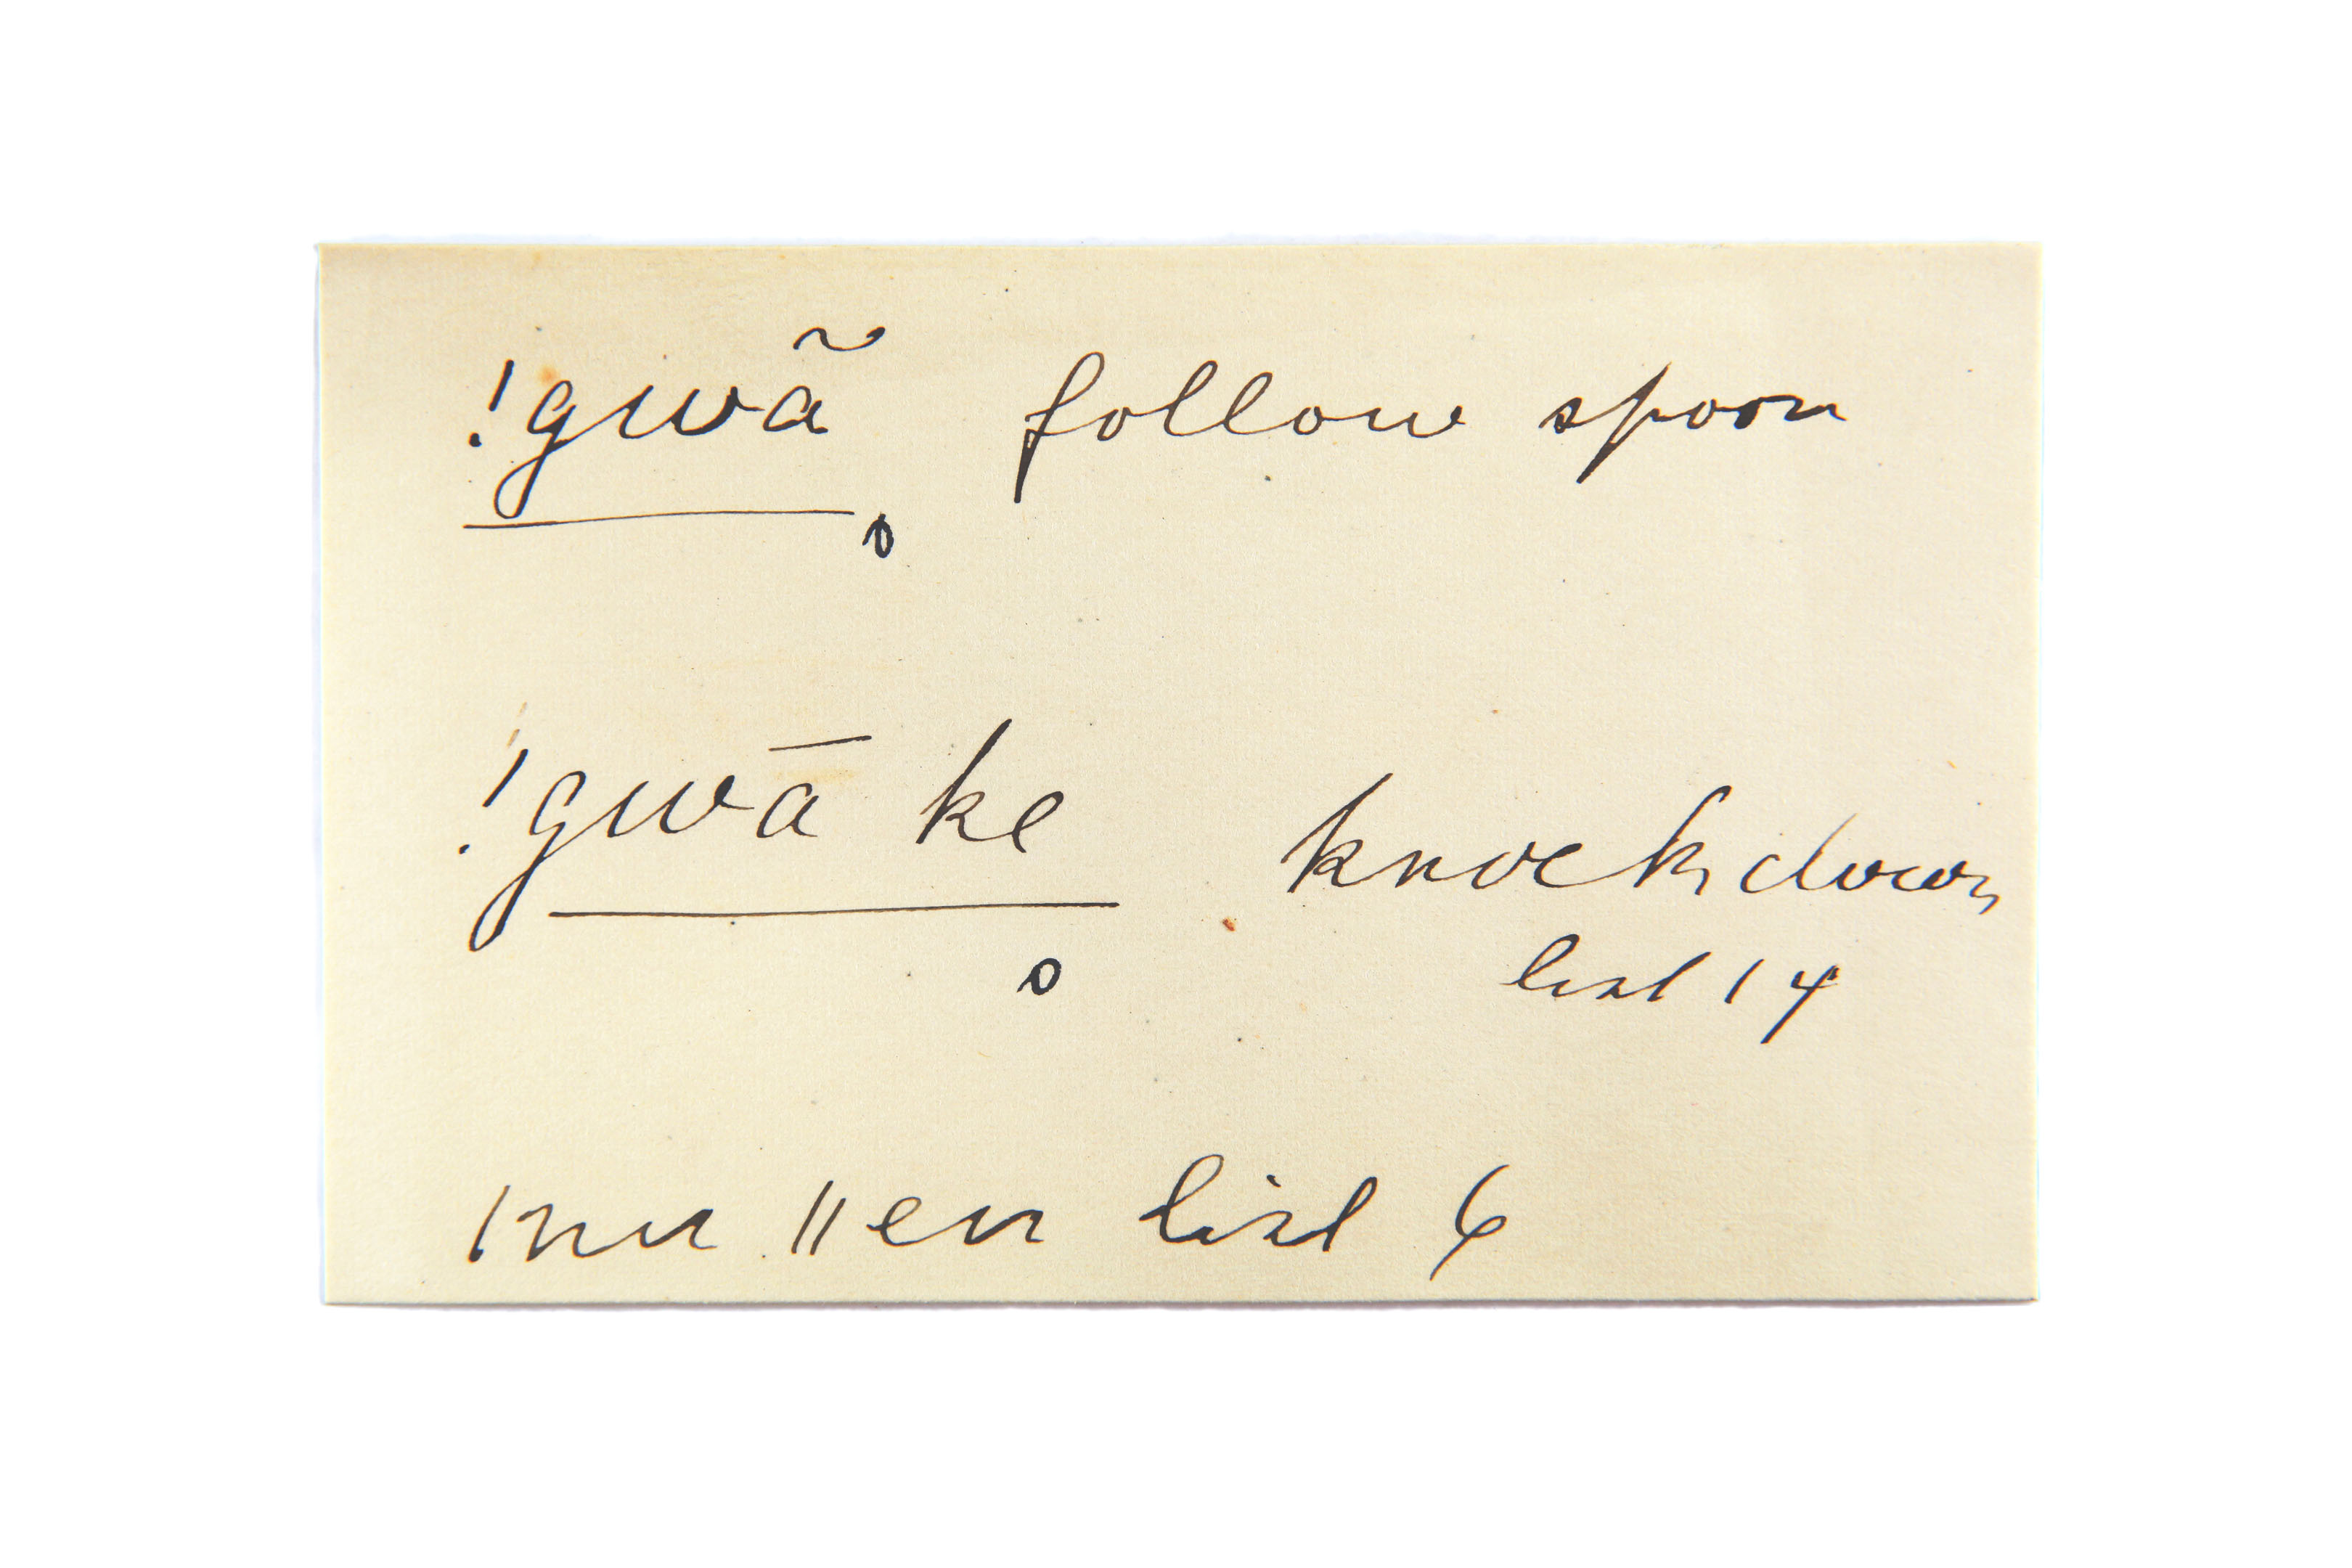 !gwã follow spoor
o
!gwā ke knock down
o list 14
|nu ||en list 6